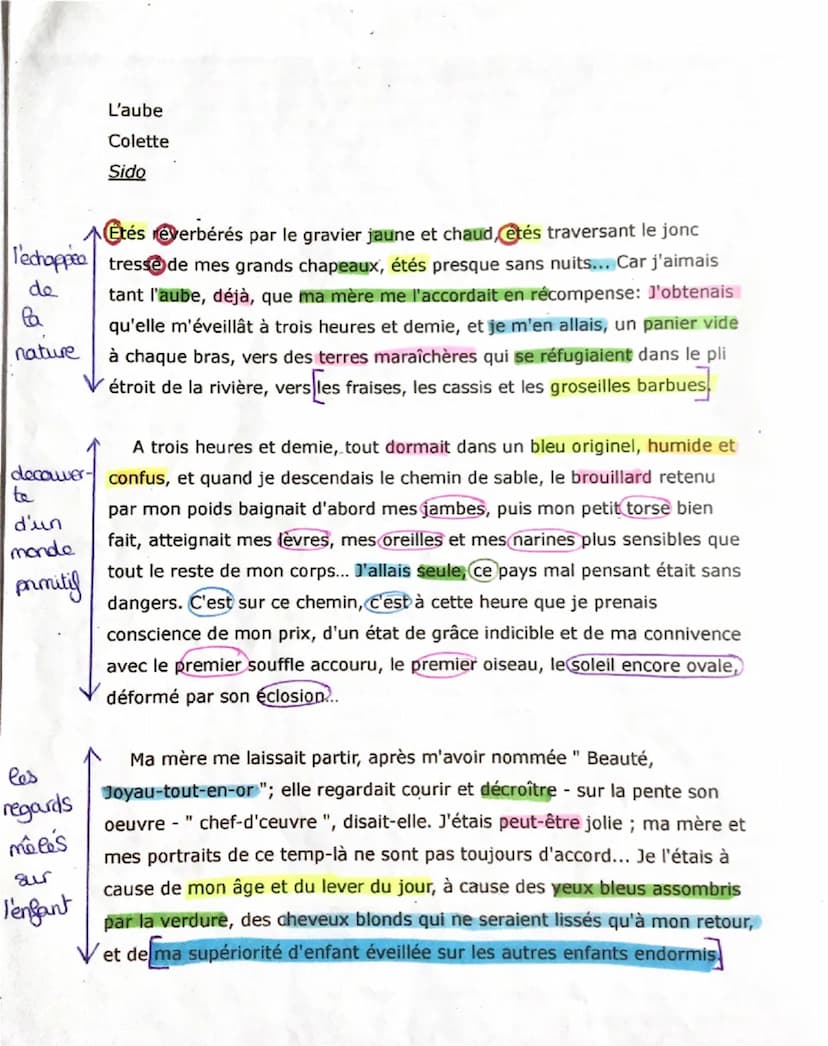 L'aube
Colette
Sido
Étés réverbérés par le gravier jaune et chaud, étés traversant le jonc
tressé de mes grands chapeaux, étés presque sans nuits... Car j'aimais
tant l'aube, déjà, que ma mère me l'accordait en récompense: J'obtenais
qu'elle m'éveillât à trois heures et demie, et je m'en allais, un panier vide
à chaque bras, vers des terres maraîchères qui se réfugiaient dans le pli
étroit de la rivière, vers les fraises, les cassis et les groseilles barbues.
l'échappée
de
la
nature
A trois heures et demie, tout dormait dans un bleu originel, humide et
confus, et quand je descendais le chemin de sable, le brouillard retenu
par mon poids baignait d'abord mes jambes, puis mon petit torse bien
fait, atteignait mes lèvres, mes oreilles et mes narines plus sensibles que
tout le reste de mon corps... J'allais seule, ce pays mal pensant était sans
dangers. C'est sur ce chemin, c'est à cette heure que je prenais
conscience de mon prix, d'un état de grâce indicible et de ma connivence
avec le premier souffle accouru, le premier oiseau, le soleil encore ovale,
déformé par son éclosion...
decouver-
te
d'un
monde
primitif
Ma mère me laissait partir, après m'avoir nommée " Beauté,
Joyau-tout-en-or "; elle regardait courir et décroître - sur la pente son
oeuvre - " chef-d'ceuvre ", disait-elle. J'étais peut-être jolie ; ma mère et
mes portraits de ce temp-là ne sont pas toujours d'accord... Je l'étais à
cause de mon âge et du lever du jour, à cause des yeux bleus assombris
par la verdure, des cheveux blonds qui ne seraient lissés qu'à mon retour,
et de ma supériorité d'enfant éveillée sur les autres enfants endormis.
les
regards
mêlés
sur
l'enfant